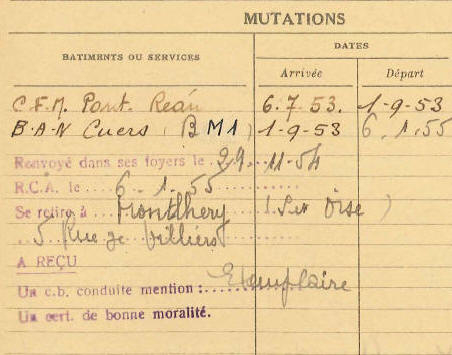 MUTATIONS
BATIMENTS OU SERVICES
DATES
Arrivée Départ
C.F.M. Pont. Réan 6.7.53. 1-9-53
B.A.N Cuers (B M1) 1-9-53 6.1.55
Renvoyé dans ses foyers le 29-11-54
R.C.A. le 6-1-55
Se retire à Montlhery (Set Oise)
5 Rue de Villiers
A REÇU
Un c.b. conduite mention : Exemplaire
Un cert. de bonne moralité.